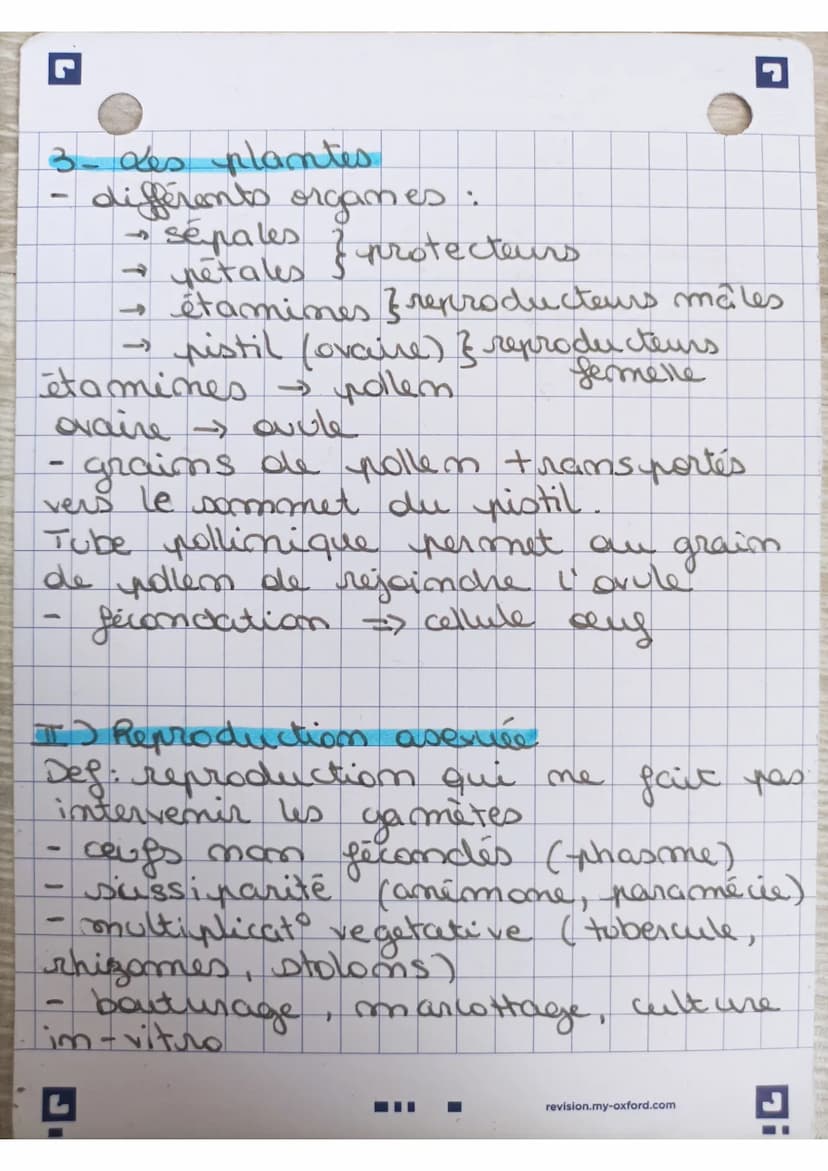 3- Les plantes
- différents organes :
→ sépales } protecteurs
→ pétales
→ étamines } reproducteurs mâles
→ pistil (ovaire) } reproducteurs femelle
étamines → pollen
ovaire → ovule
- grains de pollen transportés
vers le sommet du pistil.
Tube pollinique permet au grain
de pollen de rejoindre l'ovule
- fécondation => cellule œuf
II) Reproduction asexuée
Def : reproduction qui ne fait pas
intervenir les gamètes
- œufs non fécondés (phasme)
- sissiparité (anémone, paramécie)
- multiplicat° vegetative (tubercule,
rhizomes, stolons)
- bouturage, marcottage, culture
in-vitro
revision.my-oxford.com